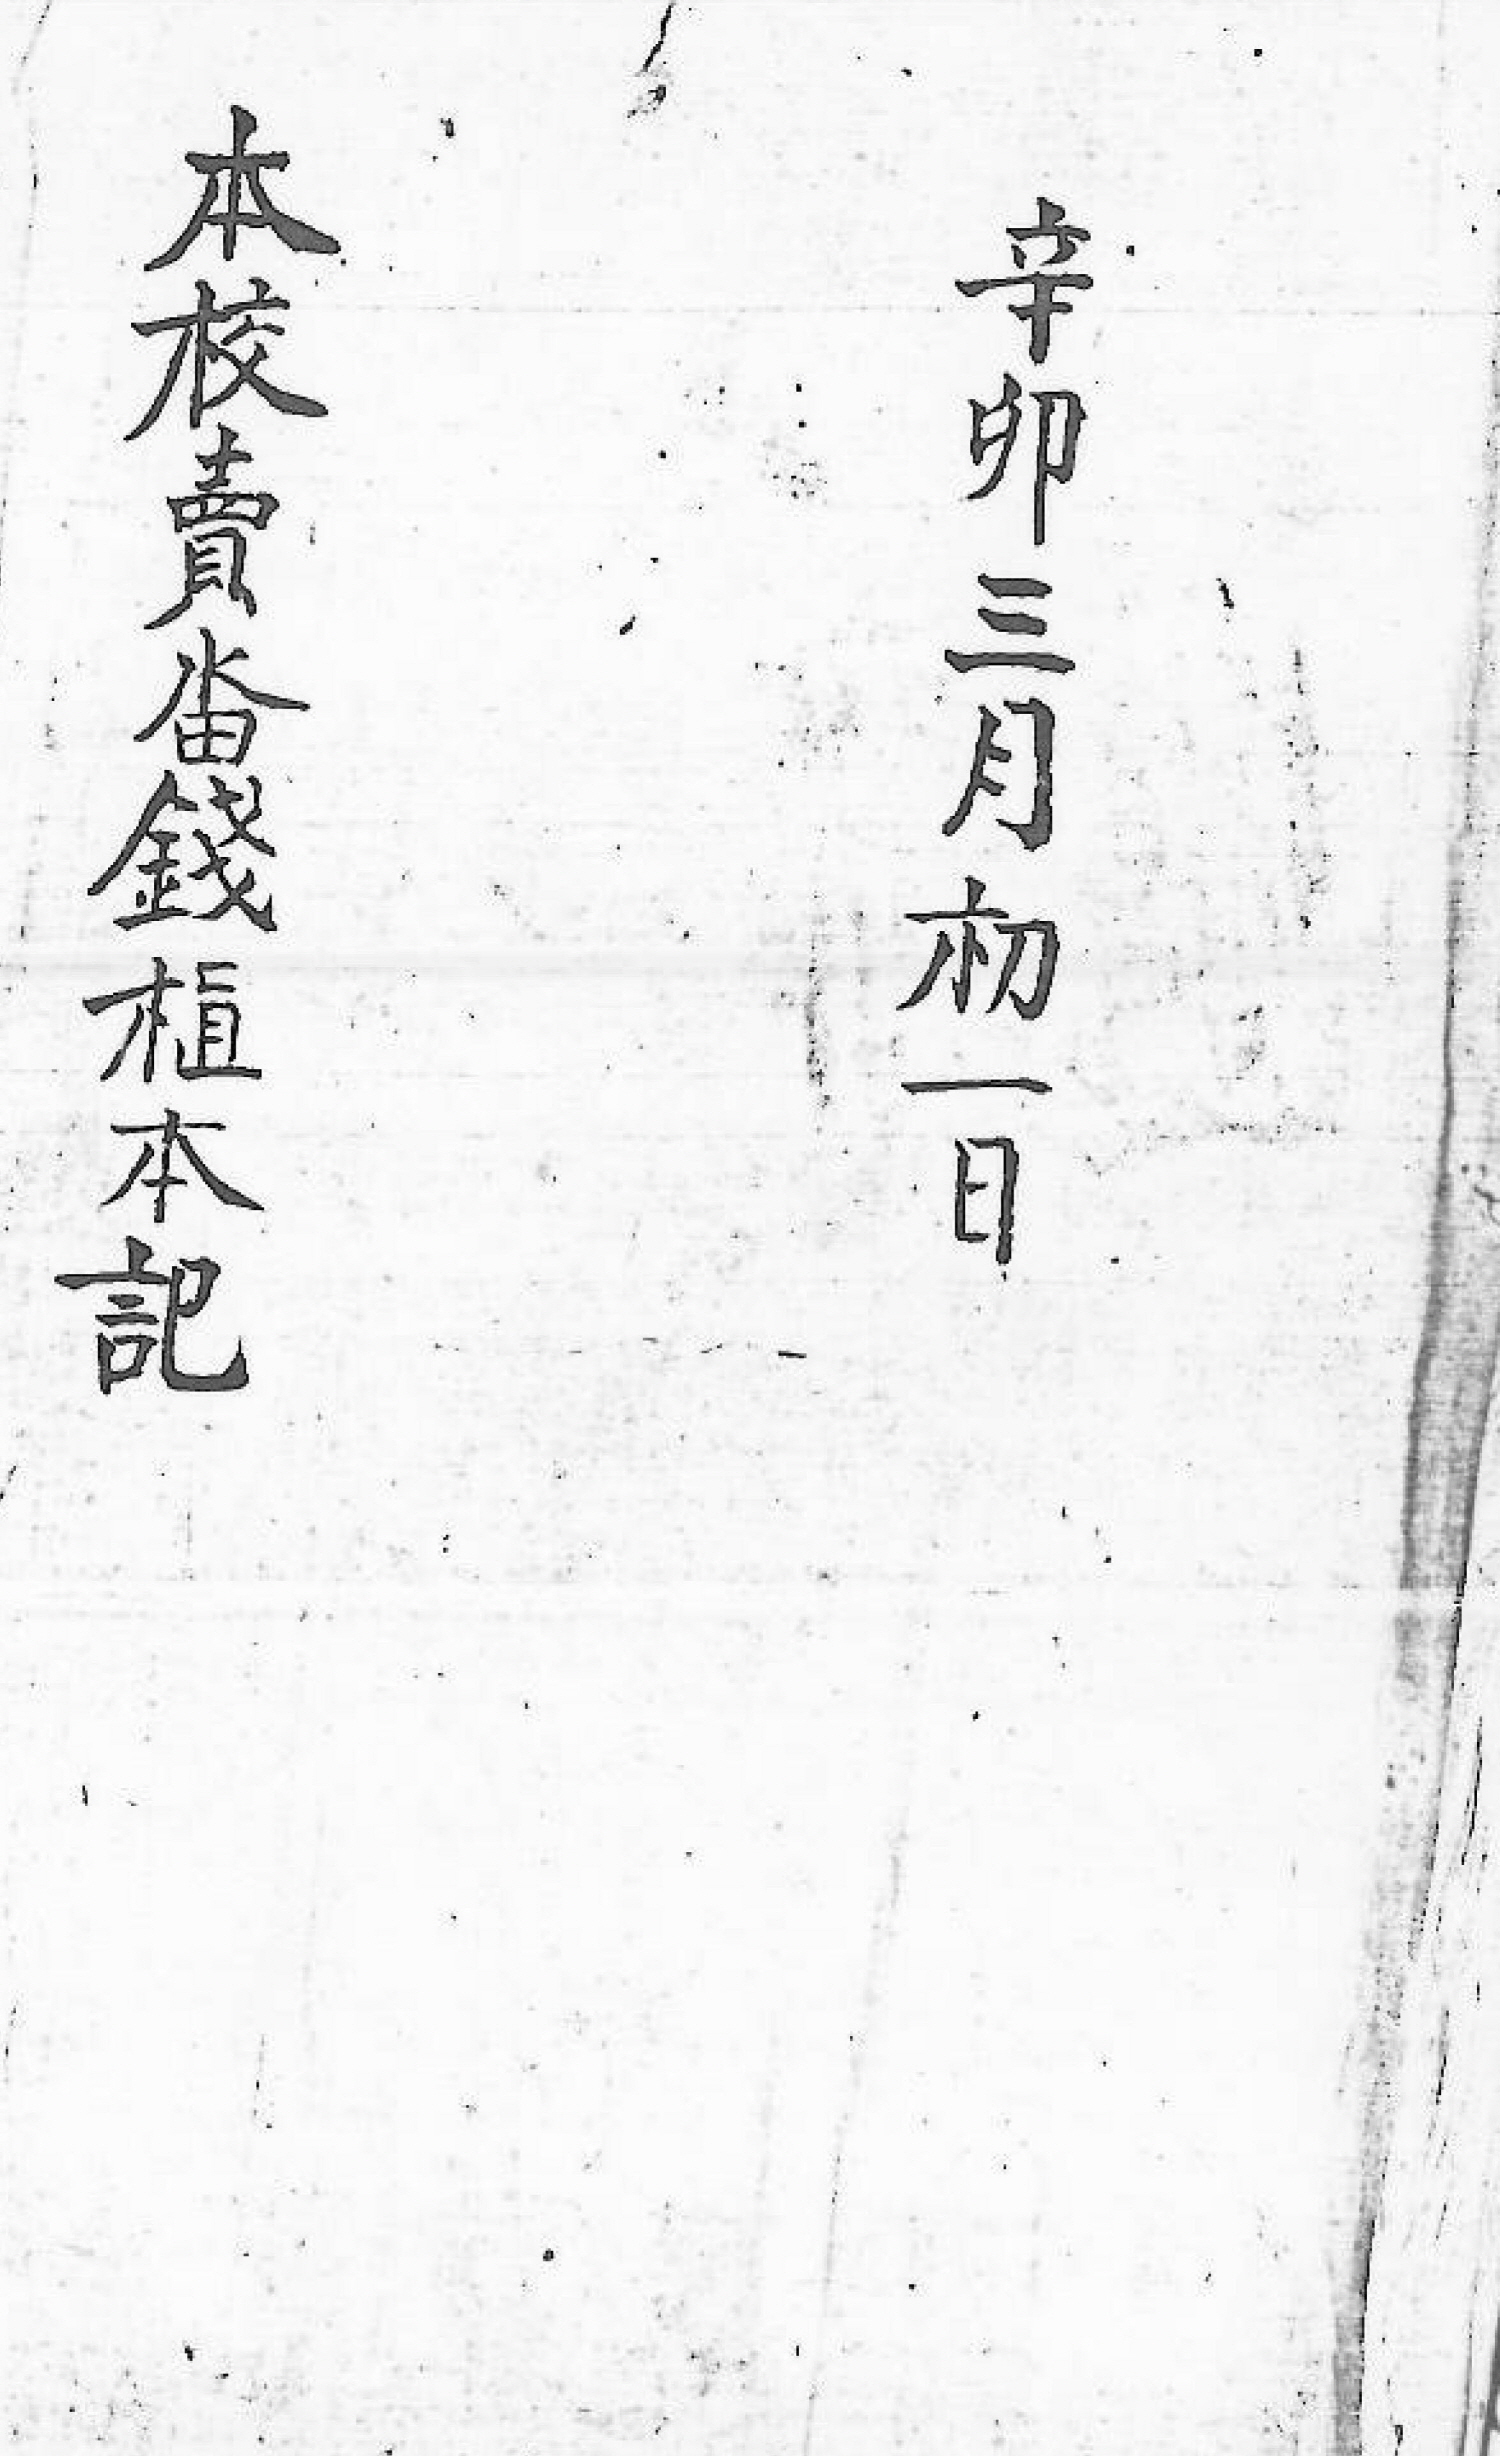 辛卯三月初一日
本校賣畓錢植本記